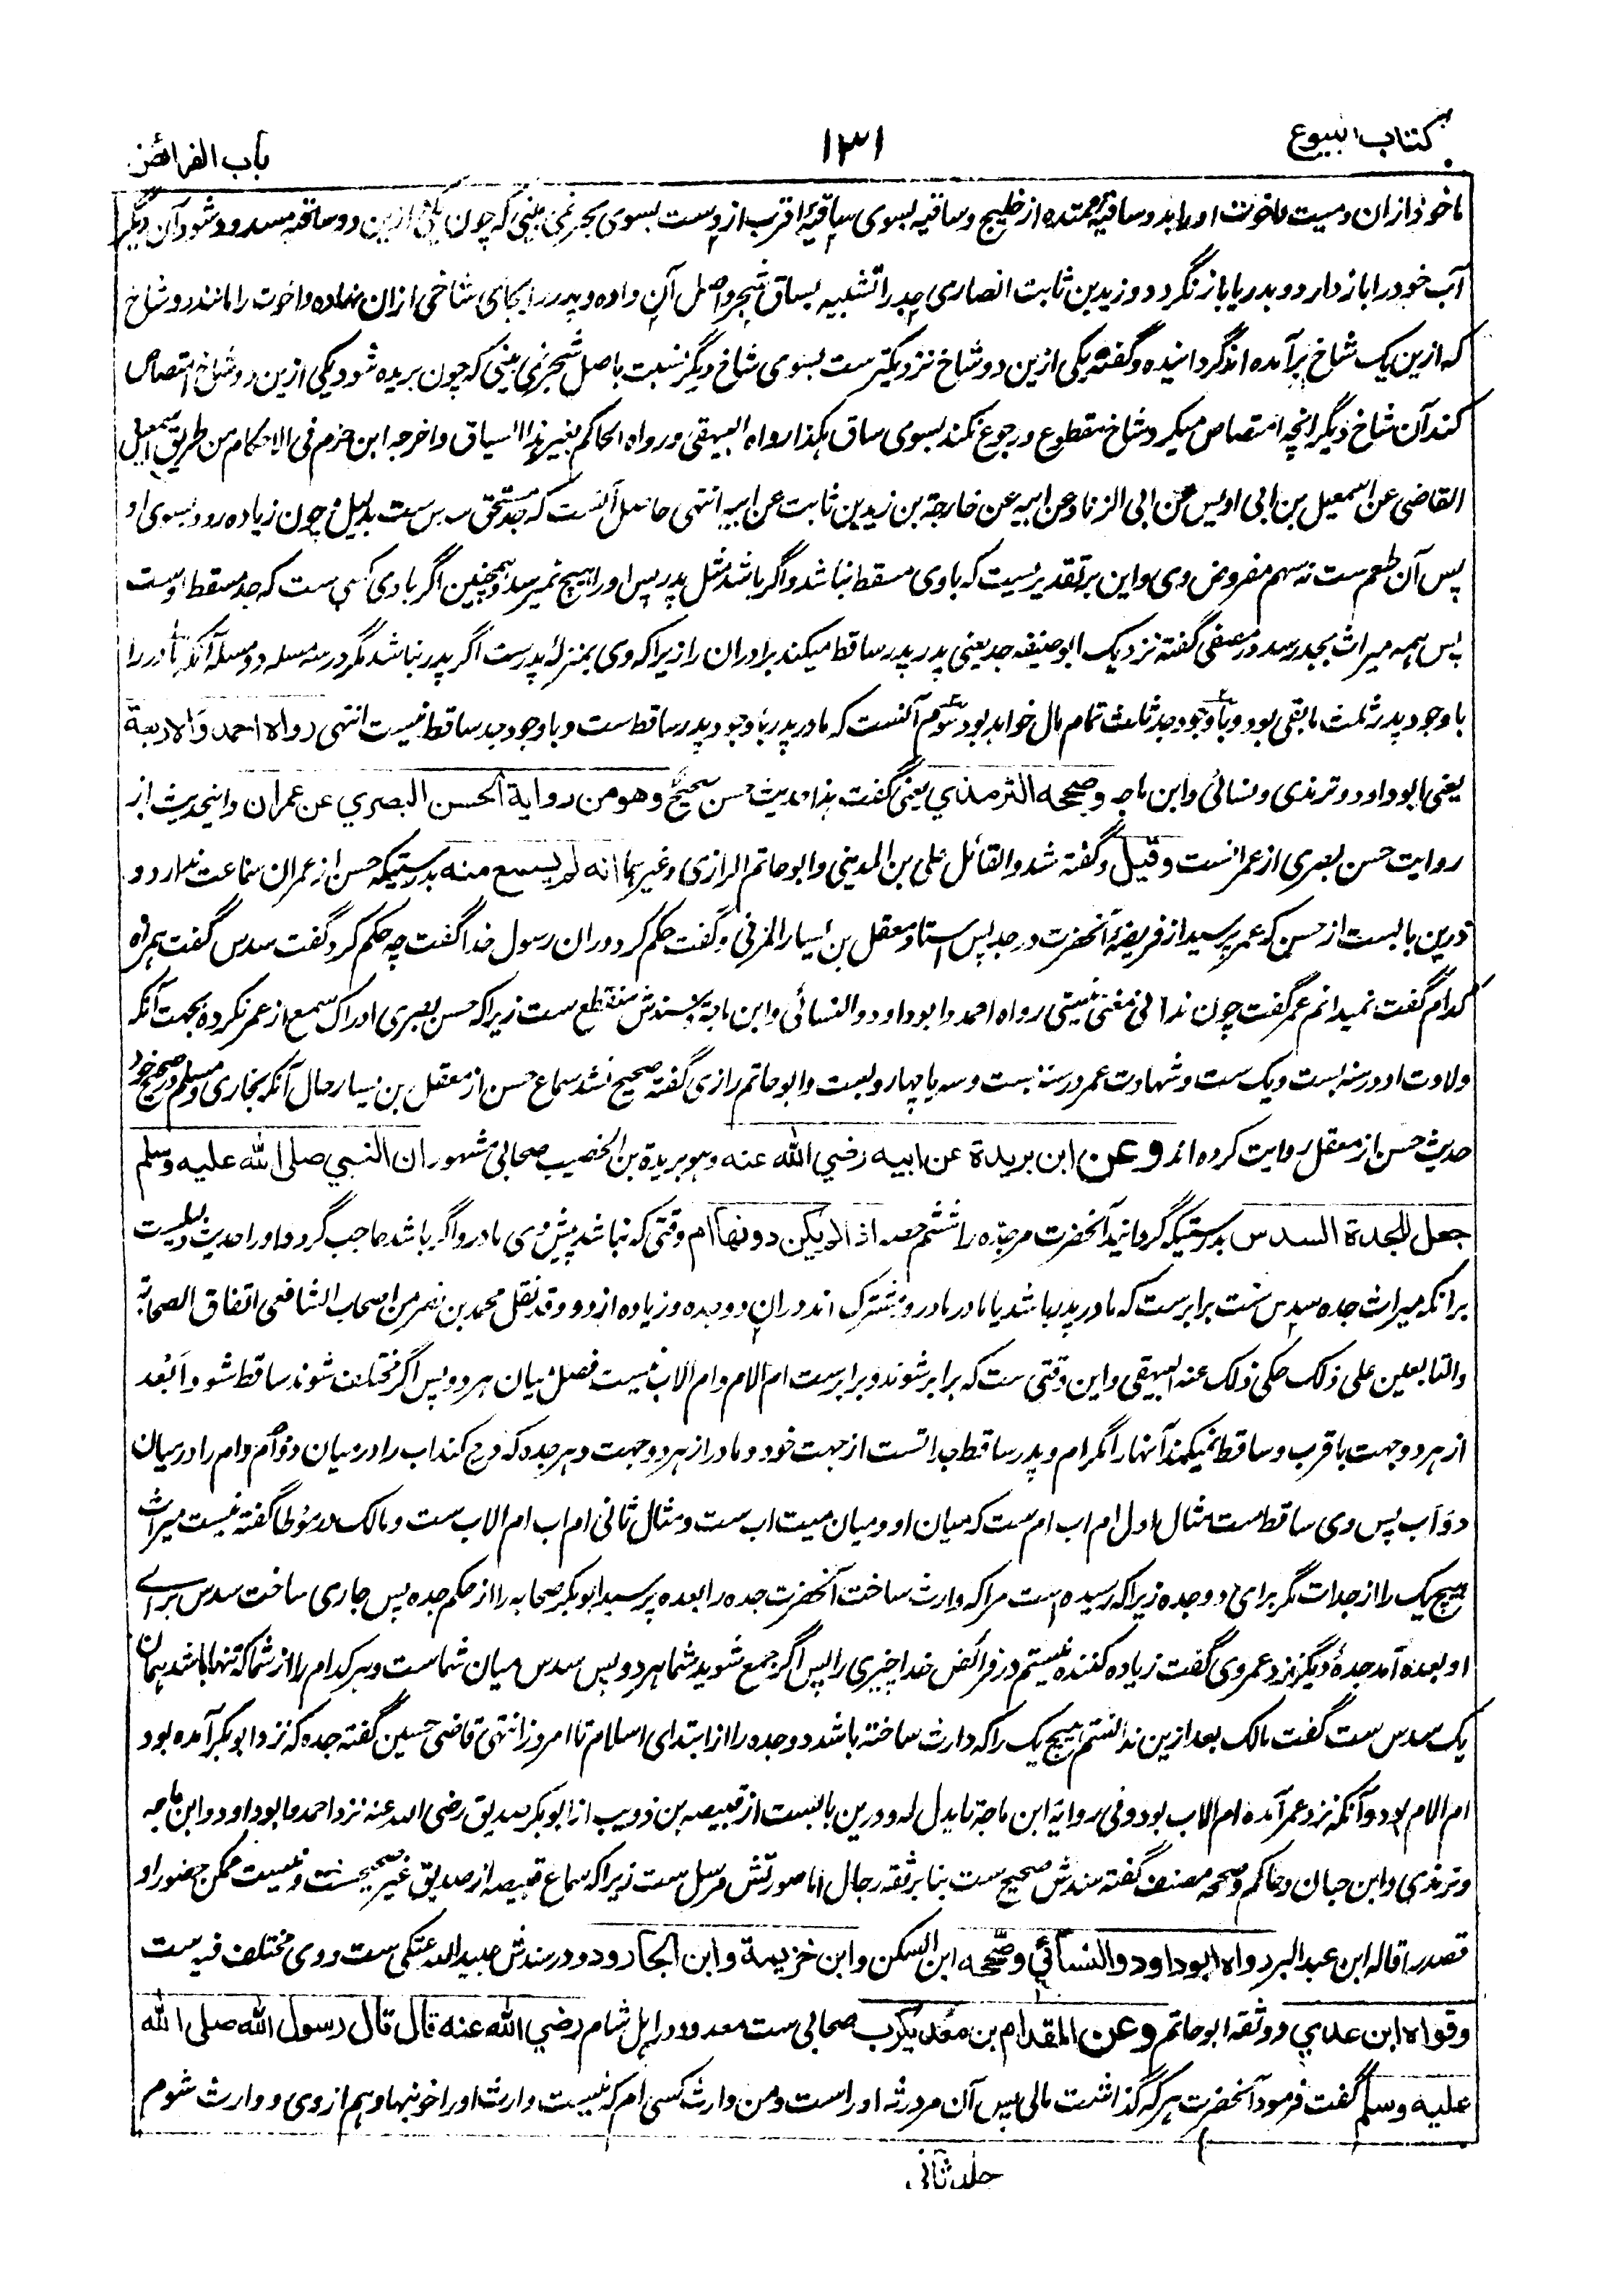 کتاب البیوع ۱۳۱ باب الفرائض
ماخوذ ازان و میت و اخوت او را بدو ساقیهٔ ممتده از خلیج و ساقیه بسوی ساقیهٔ اقرب از وست بسوی بحر نمی بینی که چون یکی ازین دو ساقیه مسدود شود آن دیگر
آب خود را باز دارد و بدریا باز نگردد و زید بن ثابت انصاری جد را تشبیه بساق شجر و اصل آن داده و پدر را بجای شاخی ازان نهاده و اخوت را مانند دو شاخ
که ازین یک شاخ برآمده اند گردانیده و گفته یکی ازین دو شاخ نزدیکتر ست بسوی شاخ دیگر نسبت باصل شجر نمی بینی که چون بریده شود یکی ازین دو شاخ امتصاص
کند آن شاخ دیگر انچه امتصاص میکرد شاخ مقطوع و رجوع نکند بسوی ساق هکذا رواه البیهقی و رواه الحاکم بغیر هذا السیاق و اخرجه ابن حزم فی الاحکام من طریق اسمعیل
القاضی عن اسمعیل بن ابی اویس عن ابی الزناد عن ابیه عن خارجة بن زید بن ثابت عن ابیه انتهی حاصل آنست که جد مستحق سدس ست بدلیل و چون زیاده رود بسوی او
پس آن طعم ست نه سهم مفروض وی و این بر تقدیریست که با وی مسقط نباشد و اگر باشد مثل پدر پس او را هیچ نمیرسد و همچنین اگر با وی کسی ست که جد مسقط اوست
پس همه میراث بجد رسد در مصفی گفته نزدیک ابوحنیفه جد یعنی پدر پدر ساقط میکند برادران را زیرا که وی بمنزلهٔ پدر ست اگر پدر نباشد مگر در سه مسله دو مسله آنکه مادر را
با وجود پدر ثلث مابقی بود و با وجود جد ثلث تمام مال خواهد بود سوم آنست که مادر پدر با وجود پدر ساقط ست و با وجود جد ساقط نیست انتهی رواه احمد والاربعة
یعنی ابوداود و ترمذی و نسائی و ابن ماجه وصححه الترمذي یعنی گفت هذا حدیث حسن صحیح وهو من رواية الحسن البصري عن عمران و اینحدیث از
روایت حسن بصری از عمرانست وقیل و گفته شد و القائل علی بن المدینی و ابو حاتم الرازی و غیرهما انه لم یسمع منه بدرستیکه حسن از عمران سماعت ندارد و
درین بابست از حسن که عمر پرسید از فریضهٔ آنحضرت در جد پس استاد معقل بن یسار المزنی و گفت حکم کرد دران رسول خدا گفت چه حکم کرد گفت سدس گفت همراه
کدام گفت نمیدانم عمر گفت چون ندانی مغنی نیستی رواه احمد و ابوداود و النسائی و ابن ماجة و سندش منقطع ست زیرا که حسن بصری ادراک سمع از عمر نکرده بجهت آنکه
ولادت او در سنه بست و یک ست و شهادت عمر در سنه بست و سه یا چهار و بست و ابو حاتم رازی گفته صحیح نشد سماع حسن از معقل بن یسار حال آنکه بخاری و مسلم در صحیح خود
حدیث حسن از معقل روایت کرده اند وعن ابن بریدة عن ابیه رضي الله عنه وهو بریدة بن الخصیب صحابی مشهور ان النبي صلی الله علیه وسلم
جعل للجدة السدس بدرستیکه گردانید آنحضرت مر جده را ششم حصه اذا لم یکن دونها ام وقتی که نباشد پیش وی مادر و اگر باشد حاجب گردد او را حدیث دلیلست
بر آنکه میراث جده سدس ست برابر ست که مادر پدر باشد یا مادر مادر و مشترک اند دران دو جده و زیاده از دو و قد نقل محمد بن نصر من اصحاب الشافعی اتفاق الصحابة
والتابعین علی ذلک حکی ذلک عنه البیهقی و این وقتی ست که برابر شوند و برابر ست ام الام و ام الاب نیست فصل میان هر دو پس اگر مختلف شوند ساقط شود اَبعد
از هر دو جهت باقرب و ساقط نمیکند آنها را مگر ام و پدر ساقط جداتست از جهت خود و مادر از هر دو جهت و هر جده که درج کند اب را در میان دو اُم و ام را در میان
دو اَب پس وی ساقط ست مثال اول ام اب ام ست که میان او و میان میت اب ست و مثال ثانی ام اب ام الاب ست و مالک در موطا گفته نیست میراث
هیچ یک را از جدات مگر برای دو جده زیرا که رسیده است مرا که وارث ساخت آنحضرت جده را بعده پرسید ابوبکر صحابه را از حکم جده پس جاری ساخت سدس برای
او بعده آمد جدهٔ دیگر نزد عمر وی گفت زیاده کننده نیستم در فرائض خدا چیزی را پس اگر جمع شوید شما هر دو پس سدس میان شماست و هر کدام را از شما که تنها باشد همان
یک سدس ست گفت مالک بعد ازین ندانستم هیچ یک را که وارث ساخته باشد دو جده را از ابتدای اسلام تا امروز انتهی قاضی حسین گفته جده که نزد ابوبکر آمده بود
ام الام بود و آنکه نزد عمر آمده ام الاب بود و فی روایة ابن ماجة ما یدل له و درین بابست از قبیصه بن ذویب از ابوبکر صدیق رضی الله عنه نزد احمد و ابوداود و ابن ماجه
و ترمذی و ابن حبان و حاکم و صححه مصنف گفته سندش صحیح ست بنا بر ثقه رجال اما صورتش مرسل ست زیرا که سماع قبیصه از صدیق غیر صحیحست و نیست ممکن حضور او
قصه را قاله ابن عبد البر رواه ابوداود والنسائي وصححه ابن السکن وابن خزیمة وابن الجارود و در سندش عبید الله عتکی ست و وی مختلف فیه ست
وقواه ابن عدي و وثقه ابو حاتم وعن المقدام بن معدیکرب صحابی ست معدود در اهل شام رضي الله عنه قال قال رسول الله صلی الله
علیه وسلم گفت فرمود آنحضرت هر که گذاشت مالی پس آن مر ورثه او راست و من وارث کسی ام که نیست وارث او را خونبها و هم از وی و وارث شوم
جلد ثانی